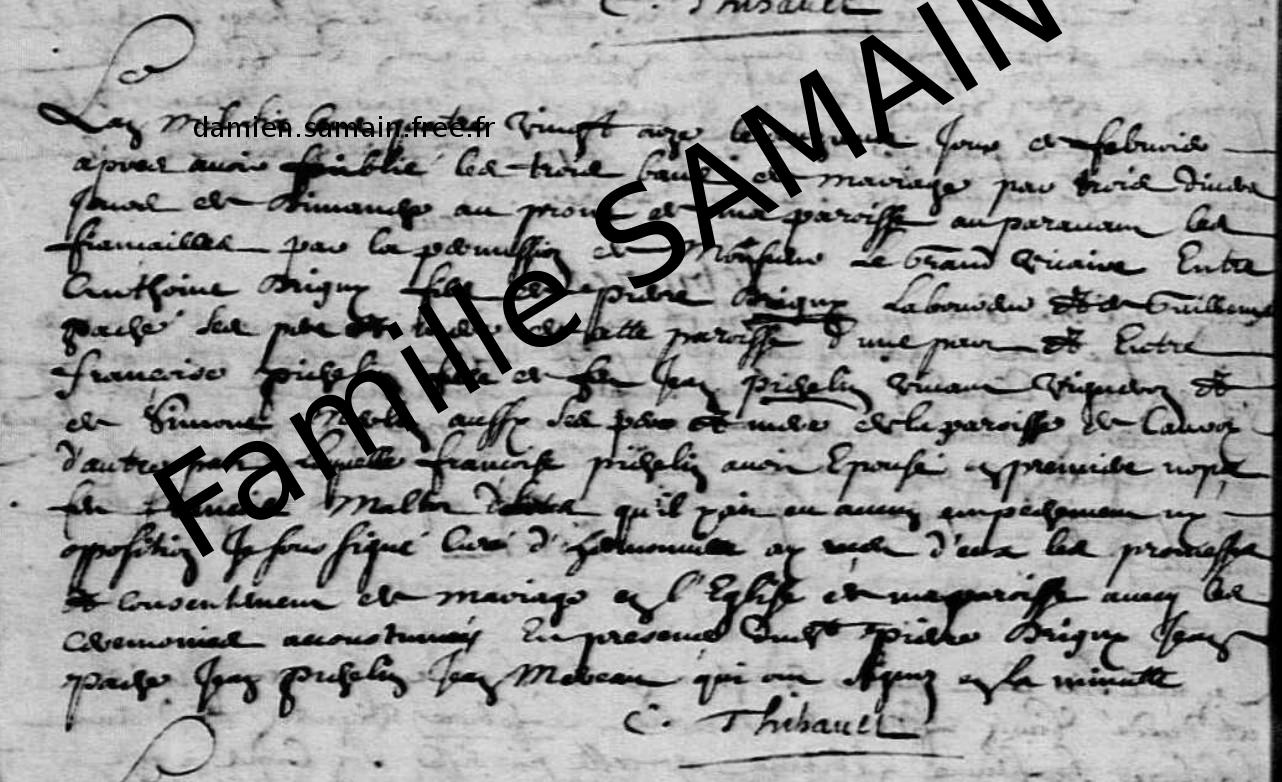 C. Thibault
L'an mil six cens quatre vingt onze le jour de febvrier
apres avoir publié les trois bans de mariage par trois divers
jours de dimanche au prone de ma paroisse auparavant les
fiancailles par la permission de Monsieur le Grand Vicaire Entre
Anthoine Brigny fils de pierre Brigny Laboureur Et de Guillemette
paché ses pere Et mere de cette paroisse d'une part Et Entre
francoise pichelin fille de feu Jean pichelin vivant Vigneron Et
de Simone aussy ses pere Et mere de la paroisse de
d'autre part Laquelle francoise pichelin avoit Epousé en premiere nopce
feu Malton qu'il y ait eu aucun empechement ny
opposition Je sous signé Curé d' ay receu d'eux les promesses
Et consentement de mariage en l'Eglise de ma paroisse avecq les
ceremonies accoustumés En presence dudit pierre Brigny Jean
paché Jean pichelin Jean Moreau qui ont signez en la minutte
C. Thibault
damien.samain.free.fr
Famille SAMAIN